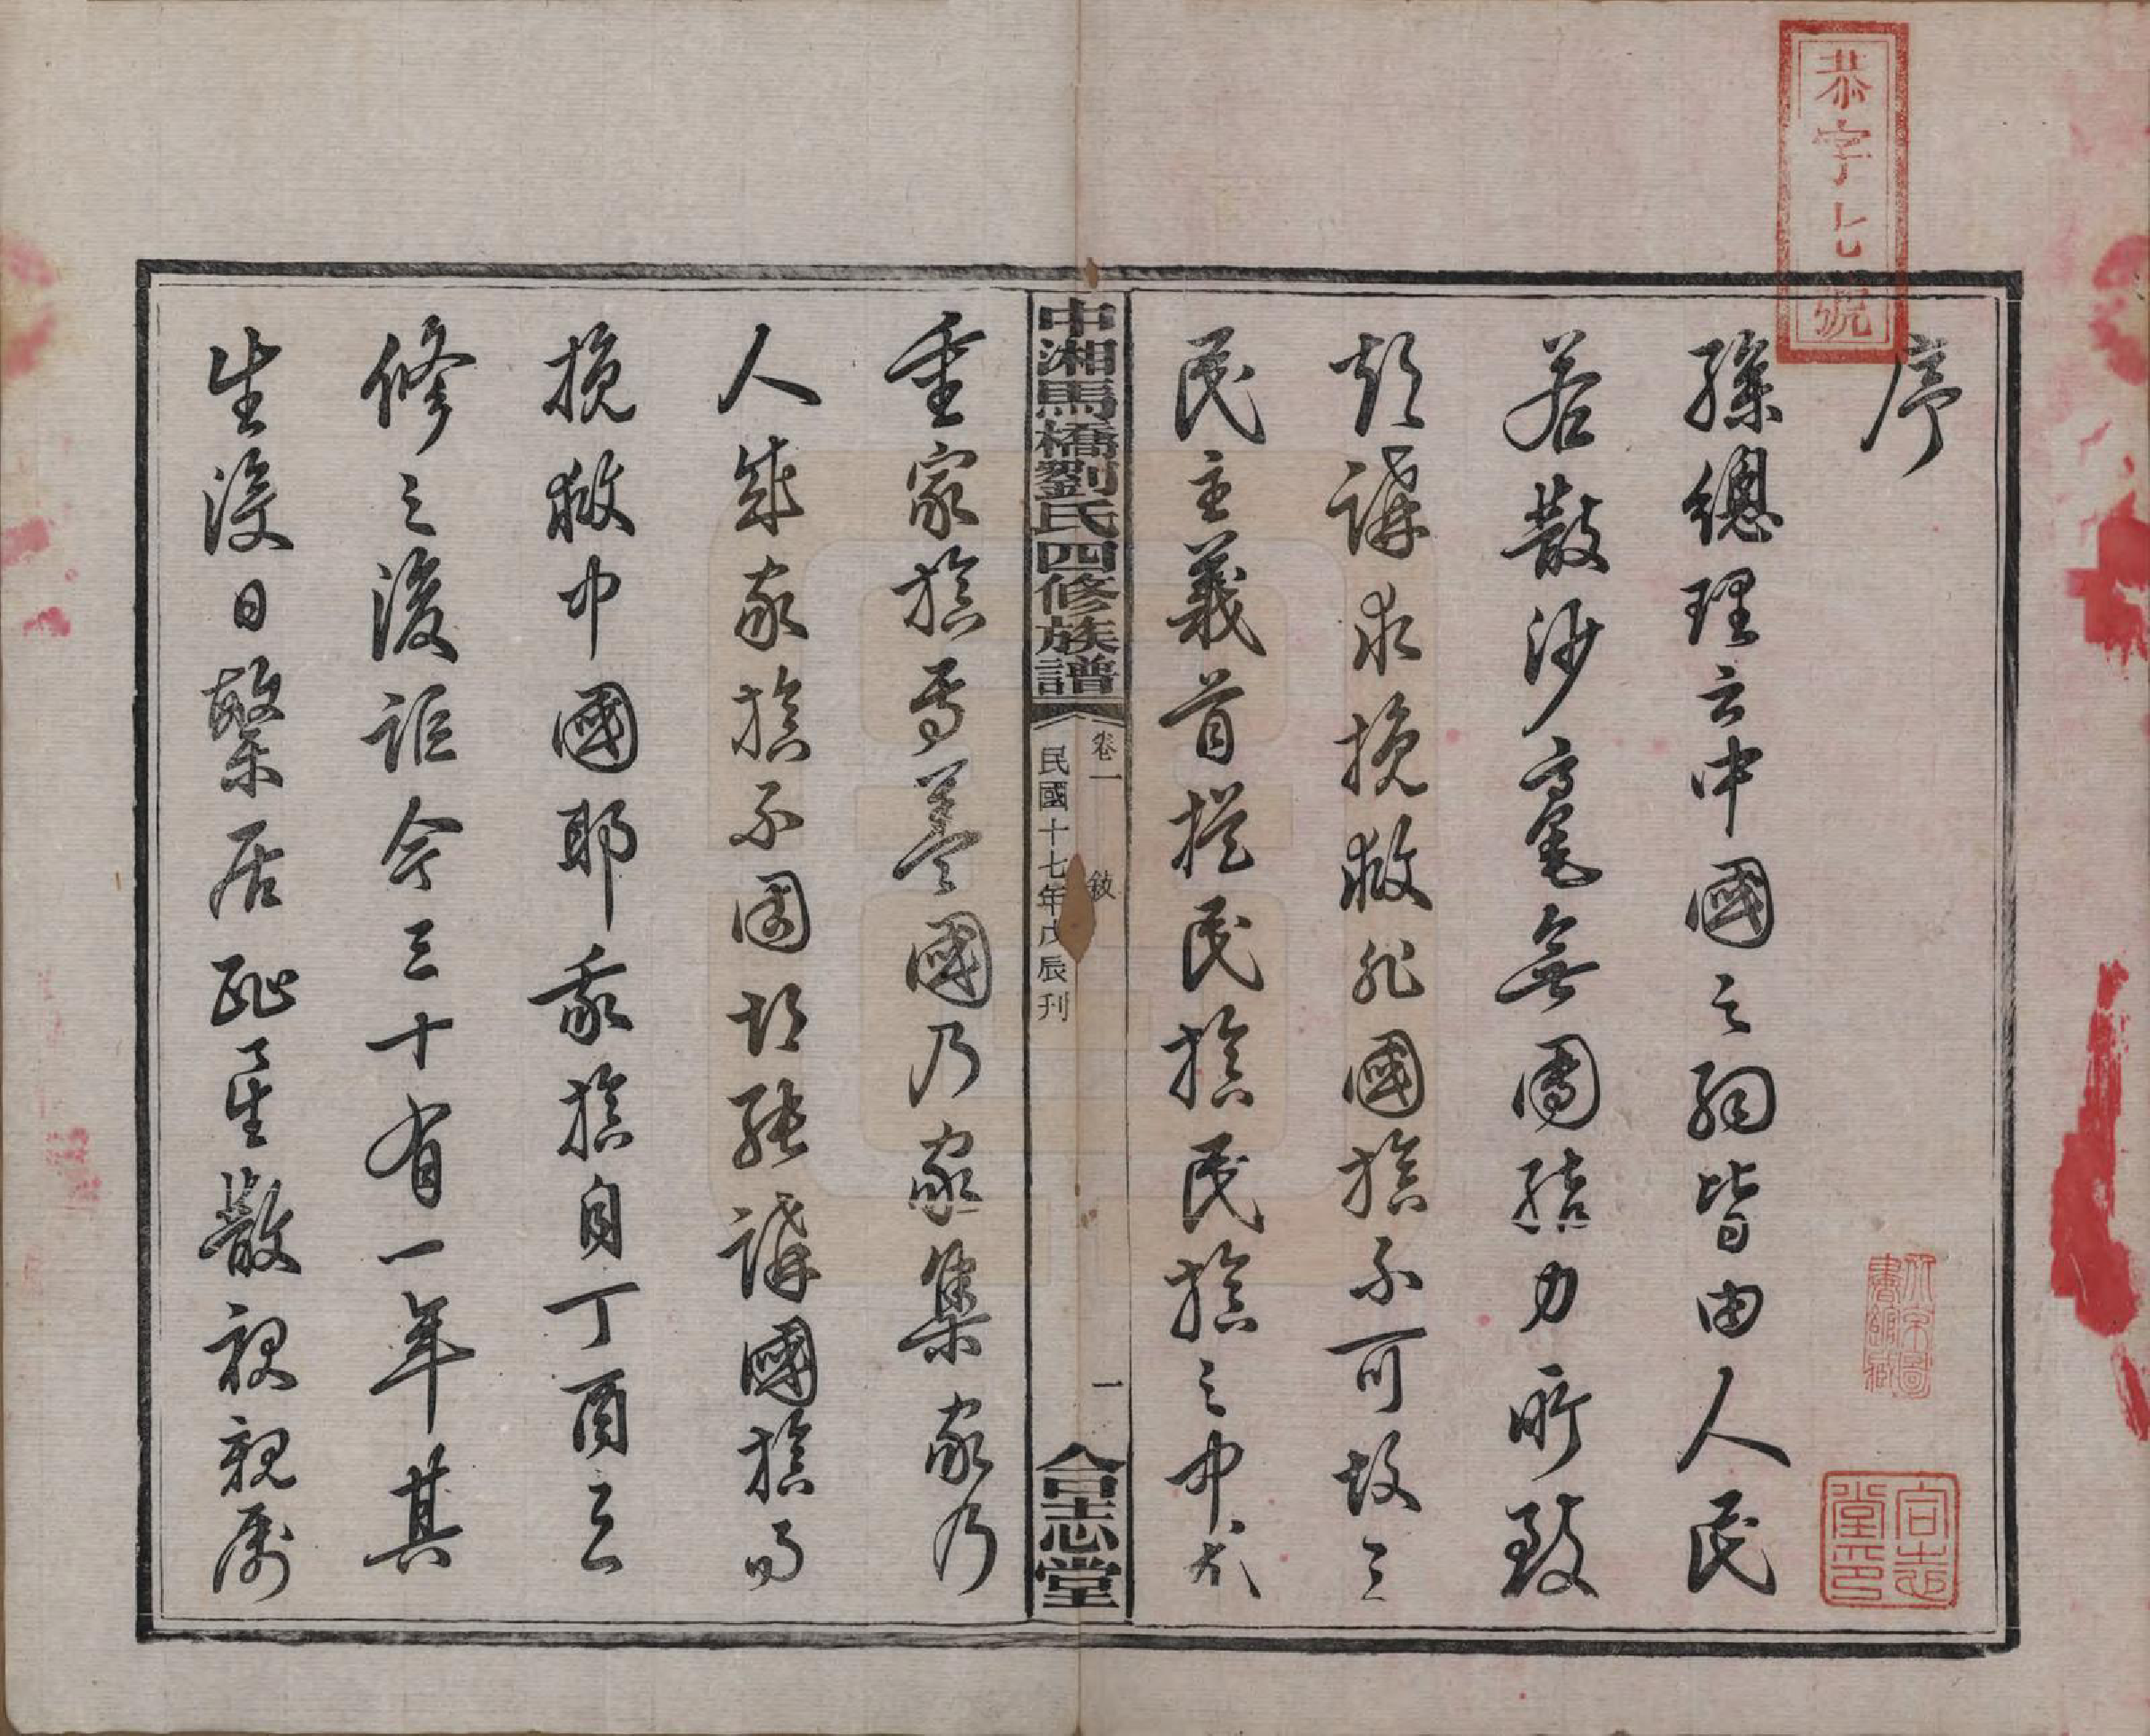 恭字七號
序
孫總理云中國之弱皆由人民
若散沙毫無團結力所致
欲講求挽救非國族不可故三
民主義首提民族民族之中尤
中湘馬橋劉氏四修族譜
卷一 敘 一
民國十七年戊辰刊
合志堂
重家族焉蓋國乃家集家乃
人集家族不固切能講國族而
挽救中國耶我族自丁酉三
修之後詎今三十有一年其
生沒日繁居趾星散視親屬
合志堂印